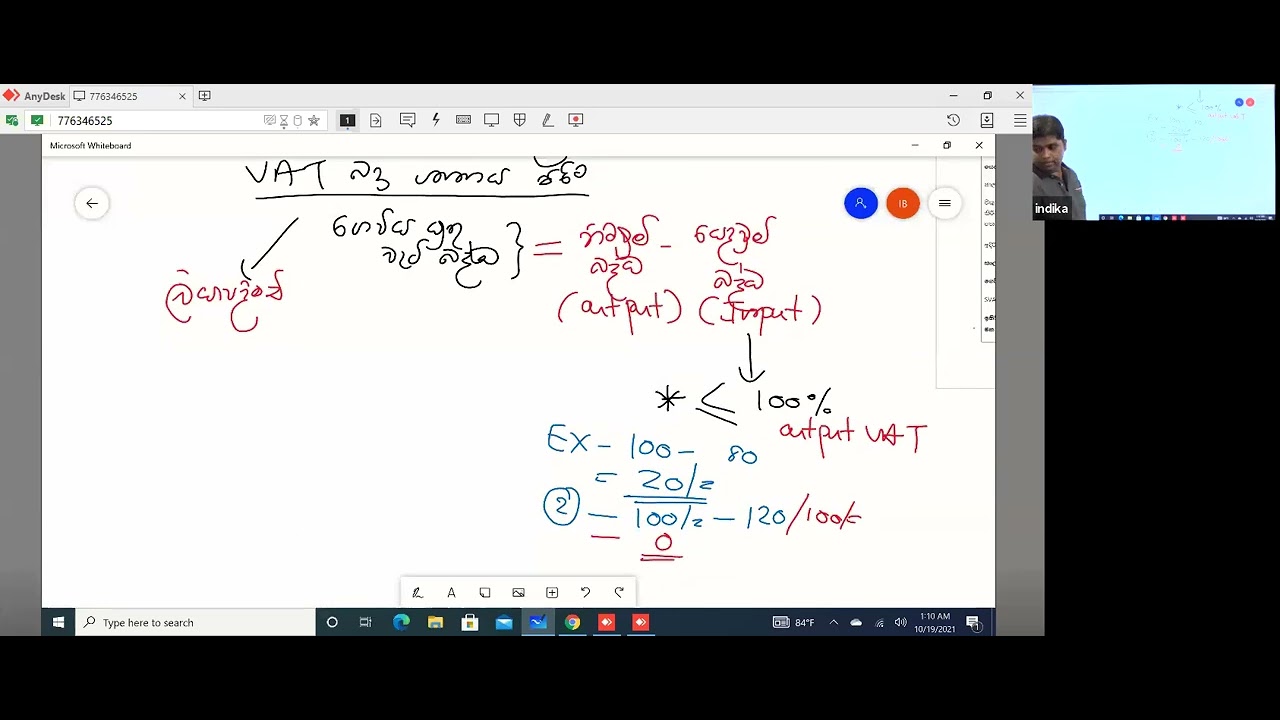 AnyDesk 776346525
776346525 1
Microsoft Whiteboard
VAT බදු ගණනය කිරීම
ගෙවිය යුතු
වැට් බද්ද } =
බද්ද
බද්ද
(output) (Input)
* ≤ 100%
output VAT
EX - 100 - 80
= 20/=
② - 100/= - 120/100/=
0
IB
SVA
indika
Type here to search
84°F
1:10 AM
10/19/2021
1